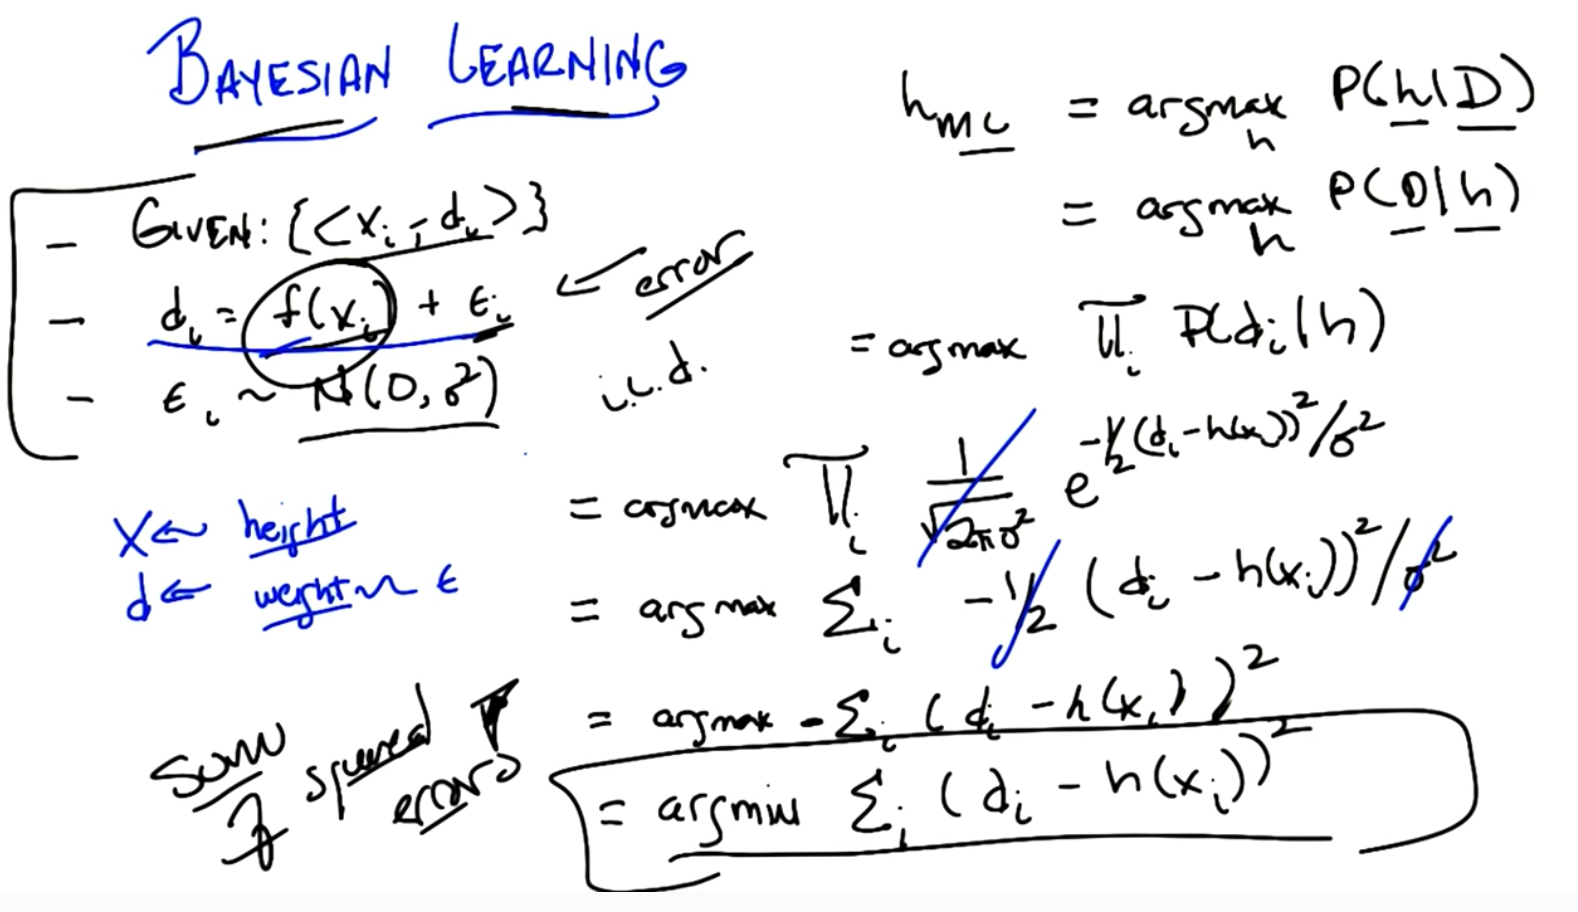 BAYESIAN LEARNING
- GIVEN: {<xᵢ, dᵢ>}
- dᵢ = f(xᵢ) + εᵢ ← error
- εᵢ ~ N(0, σ²) i.i.d.
x ← height
d ← weight ~ ε
h_ML = argmax_h P(h|D)
= argmax_h P(D|h)
= argmax ∏ᵢ P(dᵢ|h)
= argmax ∏ᵢ 1/√(2πσ²) e^(-1/2 (dᵢ-h(xᵢ))²/σ²)
= argmax Σᵢ -1/2 (dᵢ - h(xᵢ))²/σ²
= argmax -Σᵢ (dᵢ - h(xᵢ))²
= argmin Σᵢ (dᵢ - h(xᵢ))²
sum
of squared
errors